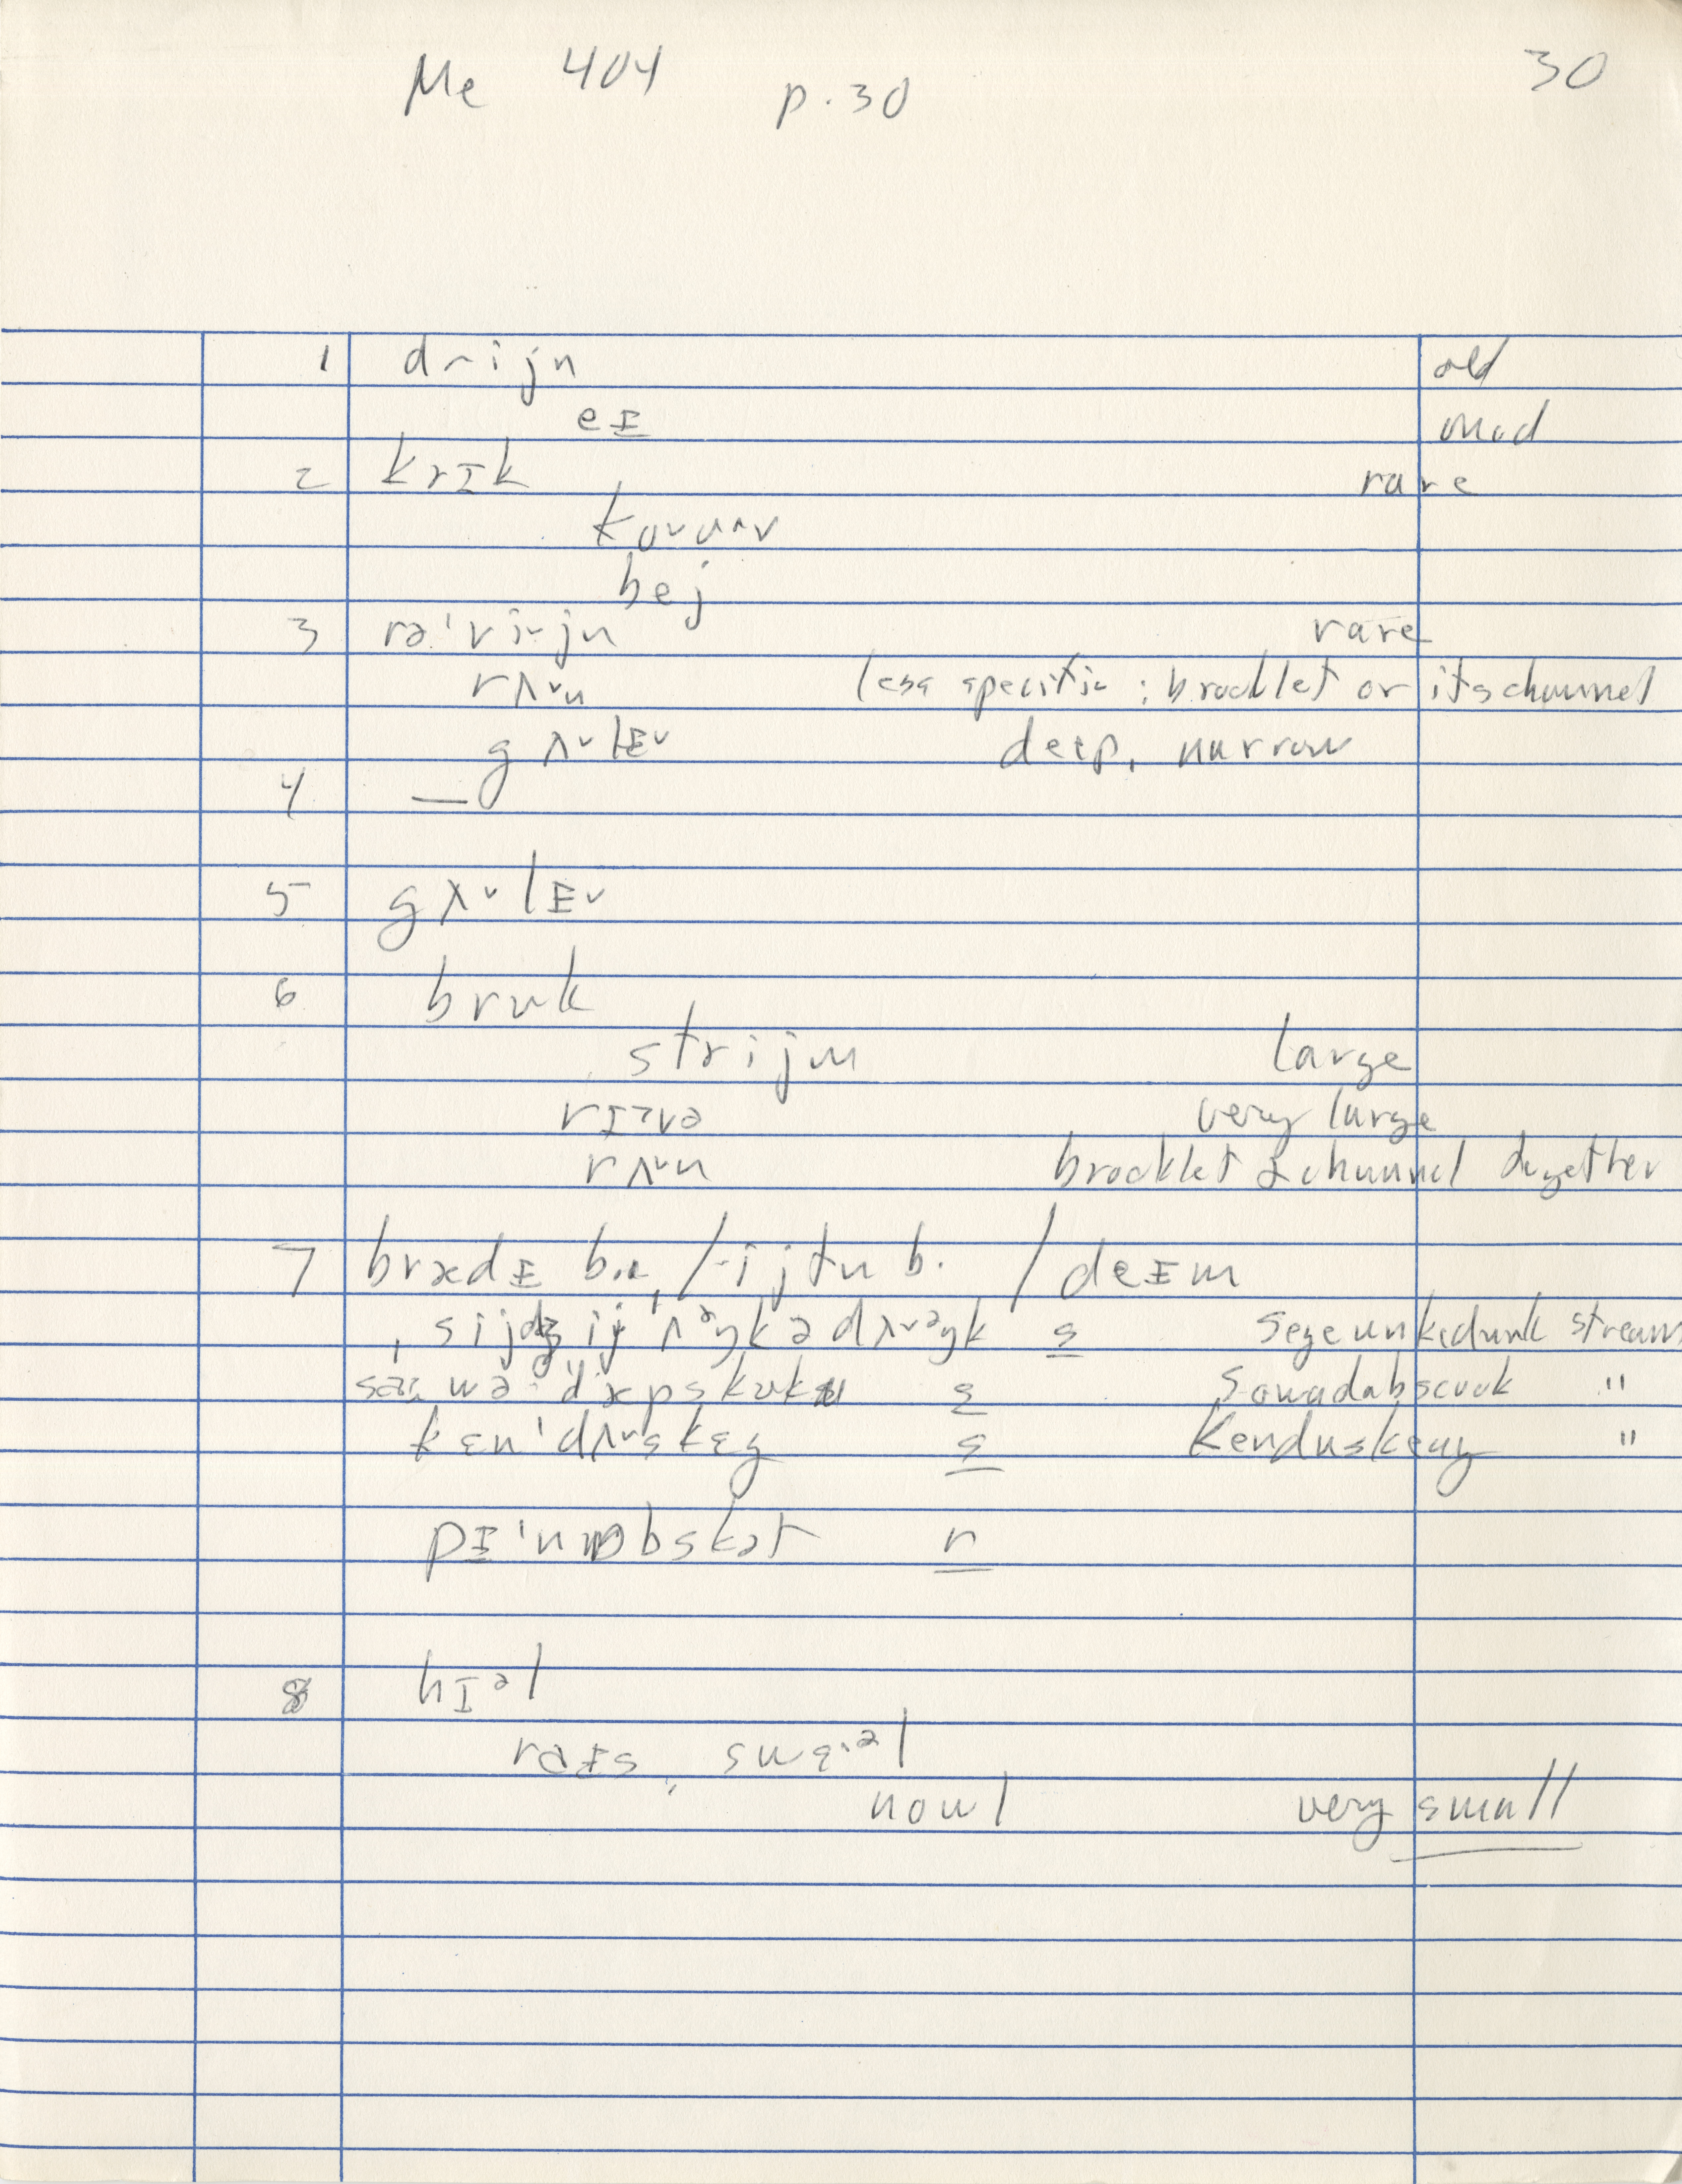 Me 404 p.30 30
1 drijn old
eɪ mod
2 krɪk rare
kovʌv
bej
3 rə'vi˅jn rare
rʌ˅n less specific : brooklet or its channel
gʌ˅lɪ˅ deep, narrow
4 —
5 gʌ˅lɪ˅
6 bruk
strijm large
rɪ˃və very large
rʌ˅n brooklet & channel together
7 brædɪ b. / ijtn b. / deɪm
sijdʒij'ʌᵊŋkədʌ˅ᵊŋk s Segeunkedunk stream
wə'dæpskʊk s Sowadabscook "
kɛn'dʌ˅skɛg s Kenduskeag "
pɪ'nɒbskət r
8 hɪᵊl
raɪs, swɛ.ᵊl
nowl very small